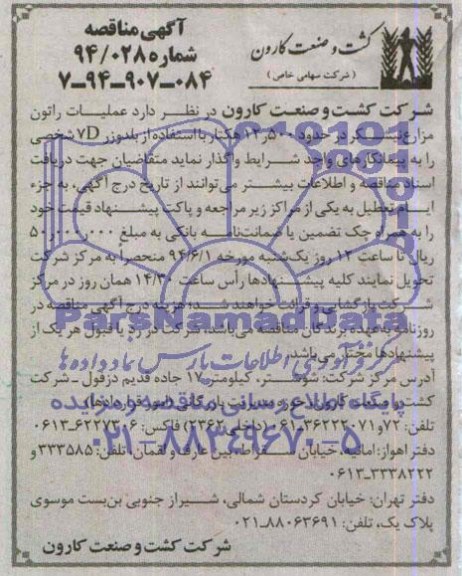 کشت و صنعت کارون
( شرکت سهامی خاص )
آگهی مناقصه
شماره ۹۴/۰۲۸
۷-۹۴-۹۰۷-۰۸۴
شرکت کشت و صنعت کارون در نظر دارد عملیات راتون
مزارع نیشکر در حدود ۱۲٫۵۰۰ هکتار با استفاده از بلدوزر 7D شخصی
را به پیمانکارهای واجد شرایط واگذار نماید متقاضیان جهت دریافت
اسناد مناقصه و اطلاعات بیشتر می‌توانند از تاریخ درج آگهی، به جزء
ایام تعطیل به یکی از مراکز زیر مراجعه و پاکت پیشنهاد قیمت خود
را به همراه چک تضمین یا ضمانت‌نامه بانکی به مبلغ
ریال تا ساعت ۱۲ روز یک‌شنبه مورخه ۹۴/۶/۱ منحصراً به مرکز شرکت
تحویل نمایند کلیه پیشنهادها رأس ساعت ۱۴/۳۰ همان روز در مرکز
شرکت بازگشایی و قرائت خواهند شد، هزینه درج آگهی مناقصه در
روزنامه به عهده برندگان مناقصه می‌باشد، شرکت در رد یا قبول هر یک از
پیشنهادها مختار می‌باشد.
آدرس مرکز شرکت: شوشتر، کیلومتر ۱۷ جاده قدیم دزفول ـ شرکت
کشت و صنعت کارون، حوزه مدیریت بازرگانی (امور قراردادها)
تلفن: ۷۲ و ۳۶۲۲۲۰۷۱-۰۶۱ (داخلی ۲۳۶۲) فاکس: ۶۲۲۷۳۰۶-۰۶۱۳
دفتر اهواز: امانیه، خیابان سقراط، بین عارف و لقمان، تلفن: ۳۳۳۵۸۵ و
۳۳۳۸۲۲۲-۰۶۱۳
دفتر تهران: خیابان کردستان شمالی، شیراز جنوبی بن‌بست موسوی
پلاک یک، تلفن: ۸۸۰۶۳۶۹۱-۰۲۱
شرکت کشت و صنعت کارون
ParsNamadData
مرکز فرآوری اطلاعات پارس نماد داده ها
پایگاه اطلاع رسانی مناقصه و مزایده
۰۲۱-۸۸۳۴۹۶۷۰-۵